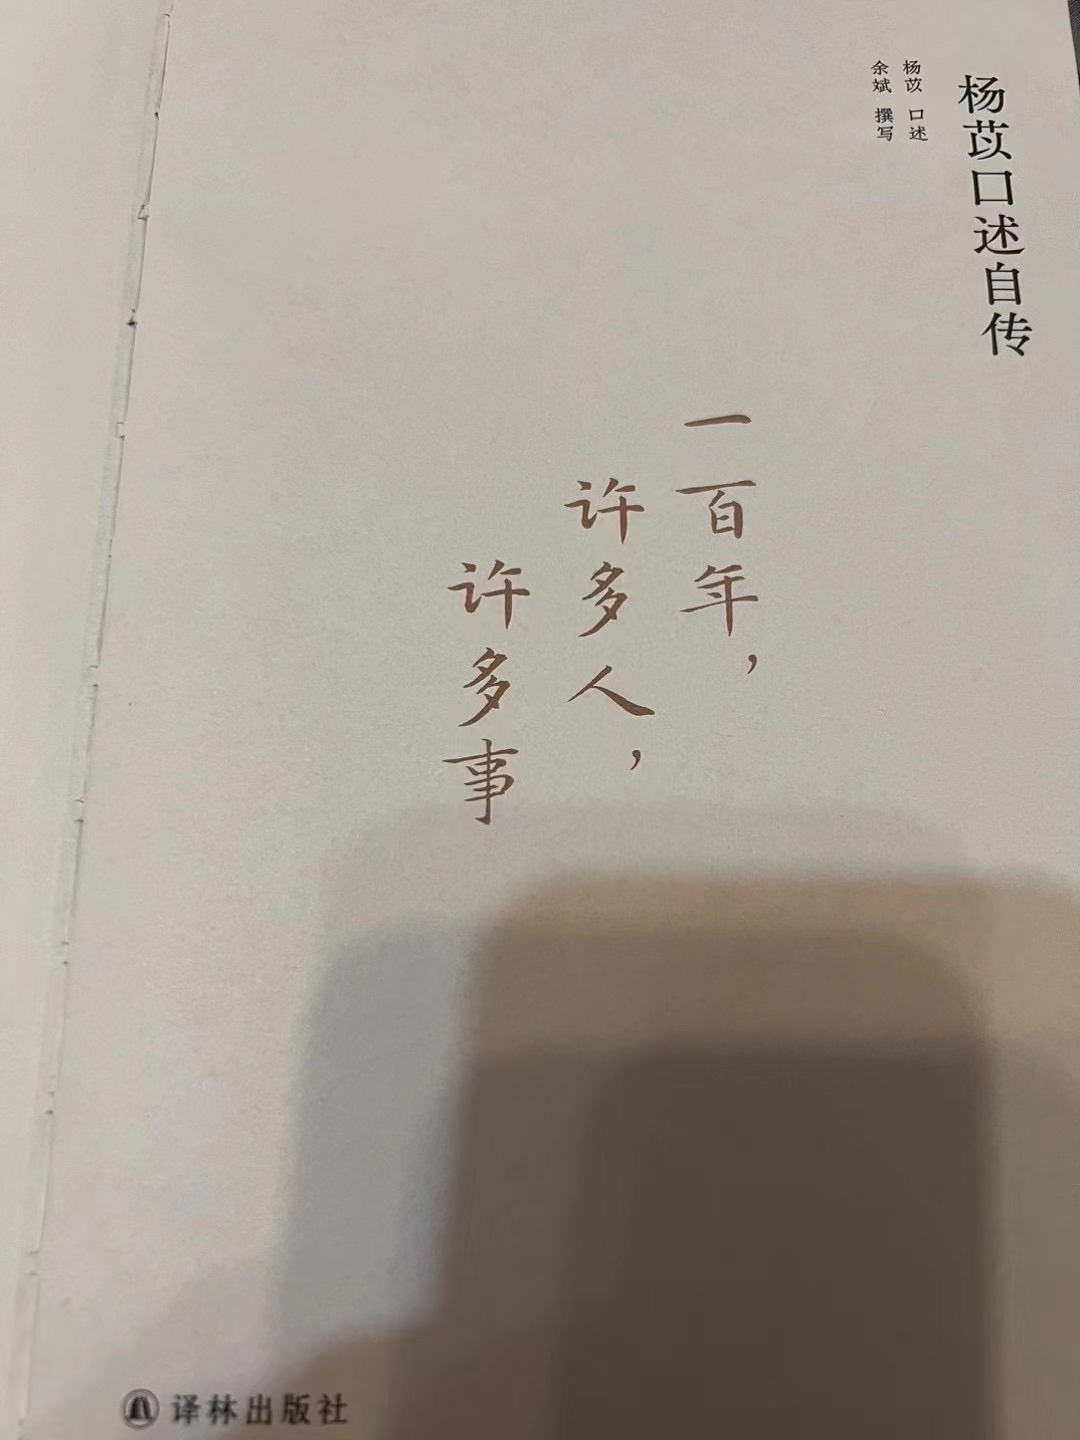 杨苡口述自传
杨苡 口述
余斌 撰写
一百年，
许多人，
许多事
译林出版社